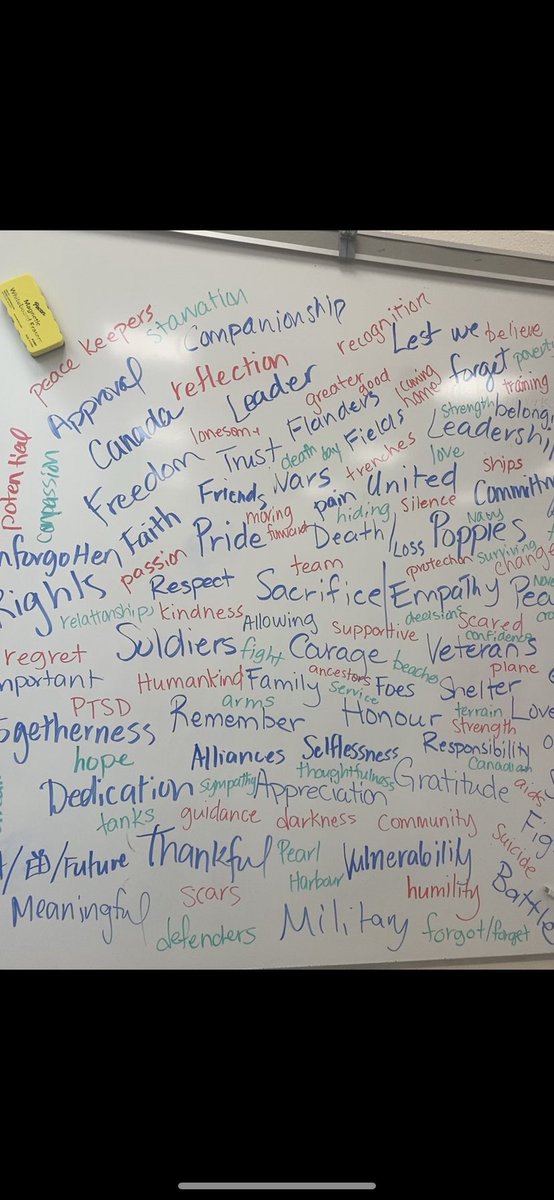 peace keepers
starvation
Companionship
recognition
Lest we forget
believe
Approval
reflection
Leader
greater good
coming home
training
Canada
lonesome
Flanders Fields
strength
belong
potential
compassion
Freedom
Trust
death bay
trenches
love
Leadership
ships
Friends
Wars
pain
United
Silence
Committm
nforgotten
Faith
Pride
moving forward
hiding
Death/Loss
Poppies
Navy
passion
team
protection
surviving
change
Rights
Respect
Sacrifice/Empathy
Pea
relationships
kindness
Allowing
supportive
decisions
scared
confidence
regret
Soldiers
fight
Courage
beaches
Veterans
mportant
Humankind
Family
ancestors
service
Foes
Shelter
plane
PTSD
arms
ogetherness
Remember
Honour
terrain
strength
Love
hope
Alliances
Selflessness
Responsibility
Canadian
Dedication
sympathy
Appreciation
thoughtfulness
Gratitude
aids
tanks
guidance
darkness
Community
Suicide
Fig
/Future
Thankful
Pearl Harbour
Vulnerability
humility
Battle
Meaningful
scars
defenders
Military
forgot/forget